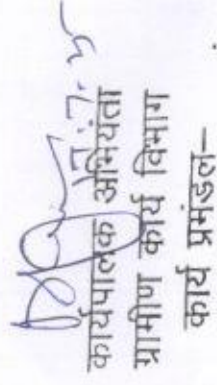 कार्यपालक अभियंता
ग्रामीण कार्य विभाग
कार्य प्रमंडल–